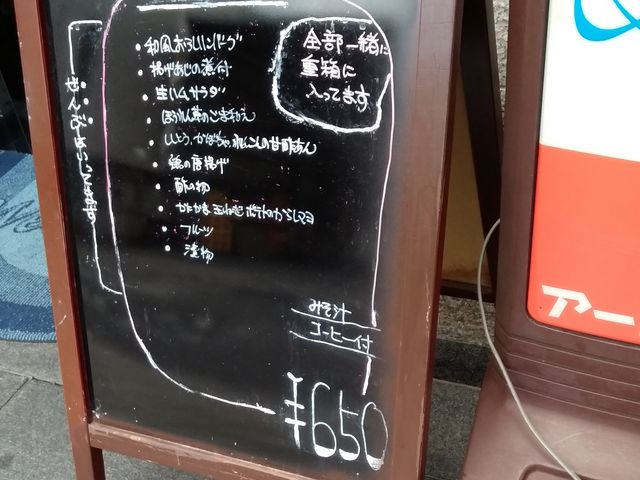 ・和風おろしハンバーグ
・揚げあじの煮付
・生ハムサラダ
・ほうれん草のごま和え
・ししとう、かぼちゃ、れんこんの甘酢あん
・鶏の唐揚げ
・酢の物
・玉ねぎ ポテトのからしマヨ
・フルーツ
・漬物
全部一緒に
重箱に
入ってます
ぜんぶはいってます
みそ汁
コーヒー付
¥650
アー